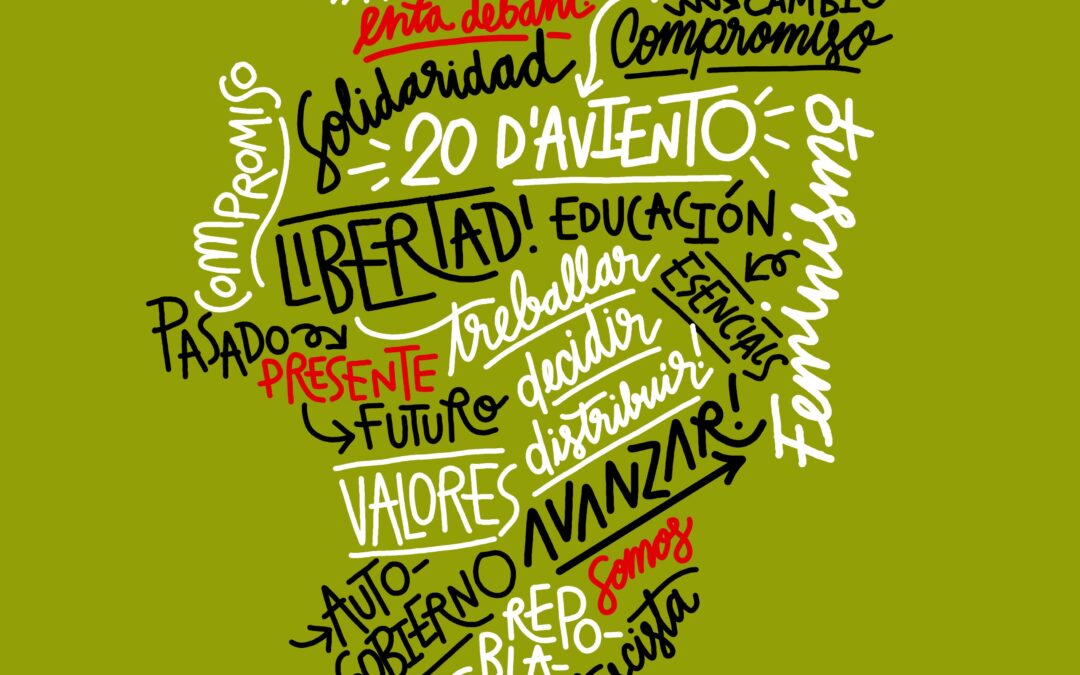 enta debant!
CAMBIO
Compromiso
Solidaridad
COMPROMISO
20 D'AVIENTO
Feminismo
LIBERTAD! EDUCACIÓN
ESENCIALS
treballar
decidir
distribuir!
PASADO
PRESENTE
FUTURO
VALORES
AVANZAR!
AUTO-
GOBIERNO
somos
REPO-
BLA-